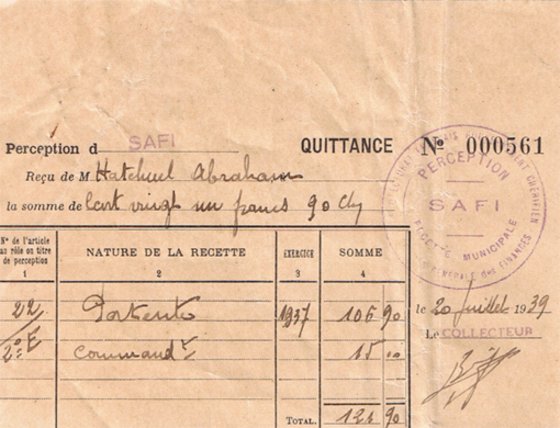 Perception d SAFI QUITTANCE No 000561
Reçu de M Hatchuel Abraham
la somme de Cent vingt un francs 90 Cts
PROTECTORAT FRANÇAIS GOUVERNEMENT CHÉRIFIEN
PERCEPTION
SAFI
RECETTE MUNICIPALE
GÉNÉRALE des FINANCES
No de l'article au rôle ou titre de perception NATURE DE LA RECETTE EXERCICE SOMME
1 2 3 4
22 Patente 1937 106 90
2e E Command r 15 00
TOTAL. 121 90
le 20 Juillet 1939
Le COLLECTEUR